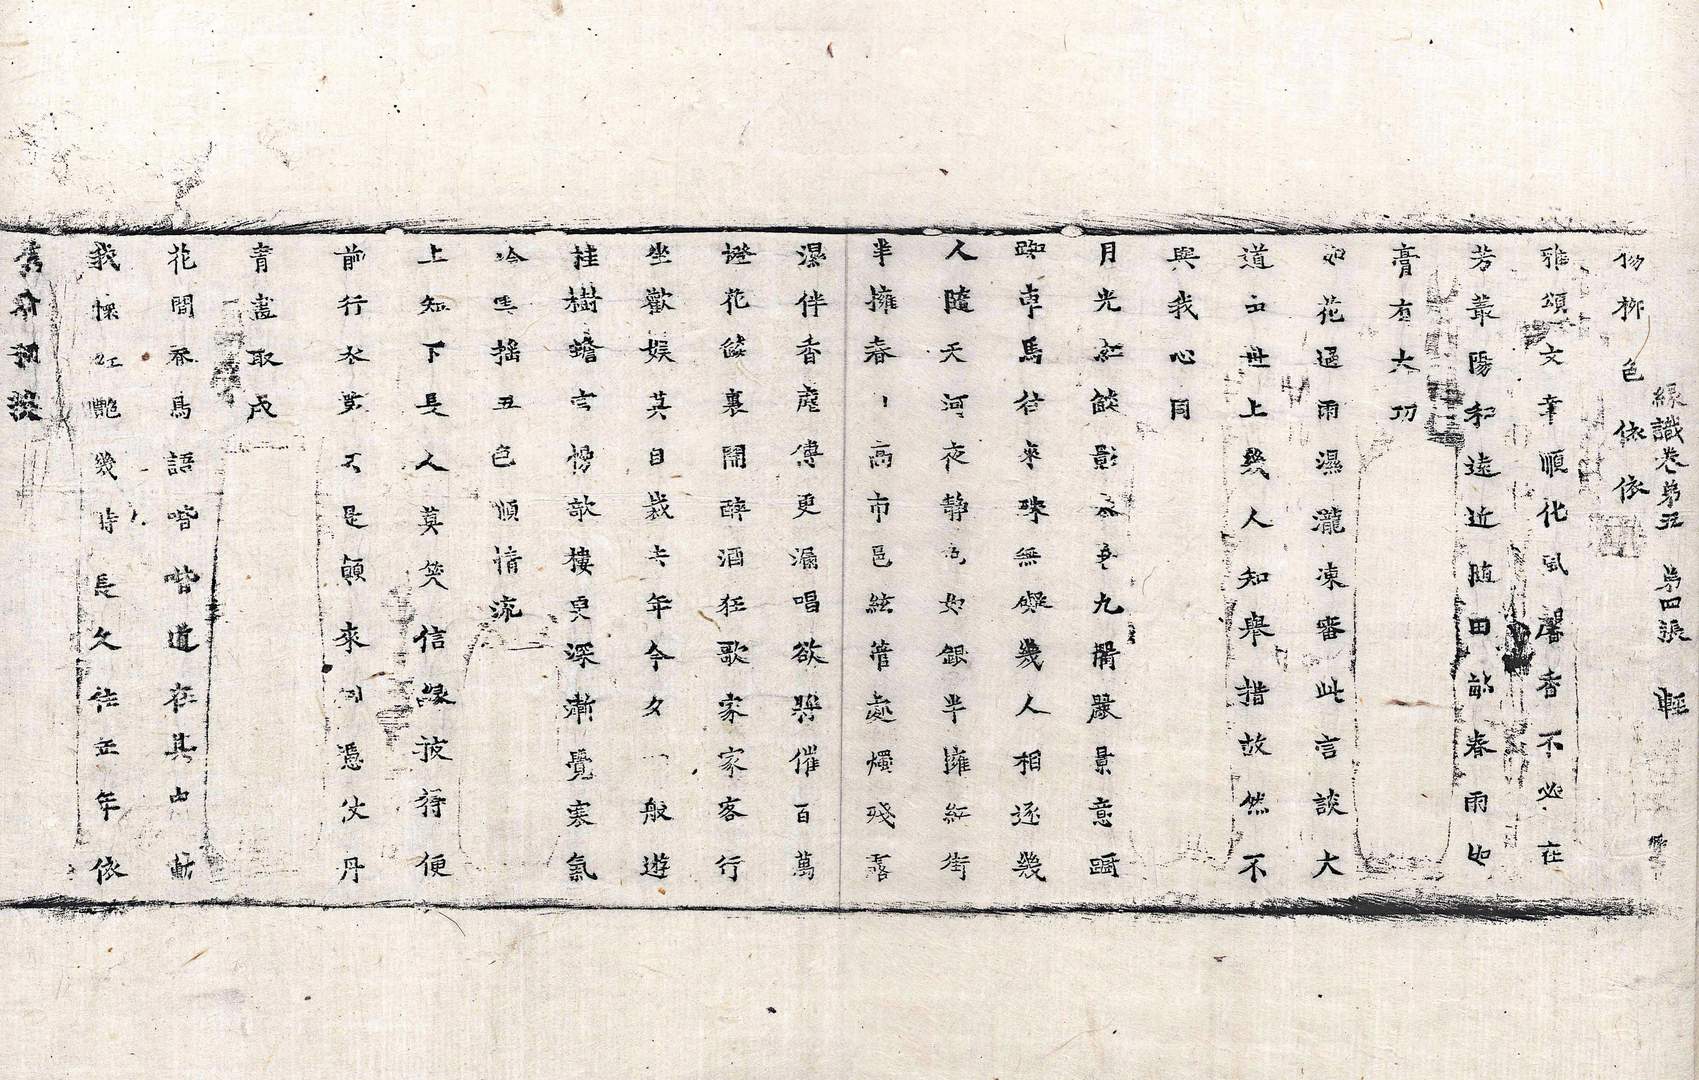 緣識卷第五 第四張 輕
楊柳色依依
雅頌文章順化風馨香不必在
芳叢陽和遠近隨田畝春雨如
膏有大功
如花過雨濕瀧凍審此言談大
道中世上幾人知舉措故然不
與我心同
月光紅燄影 九衢嚴景意踟
蹰車馬往來殊無礙幾人相逐幾
人隨天河夜靜 如銀半擁紅街
半擁春 高市邑絃管處燭殘落
瀑伴香塵傳更漏唱欲將催百萬
燈花燄裏鬧醉酒狂歌家家客行
坐歡娛其自裁去年今夕一般遊
桂樹蟾宮傍歌樓更深漸覺寒氣
冷 搖丑色順情流
上知下長人莫笑信緣被得便
前行 不是顛來 憑伏丹
青盡取成
花間春鳥語喈喈道在其中
我 紅艷幾時長久住 年依
舊